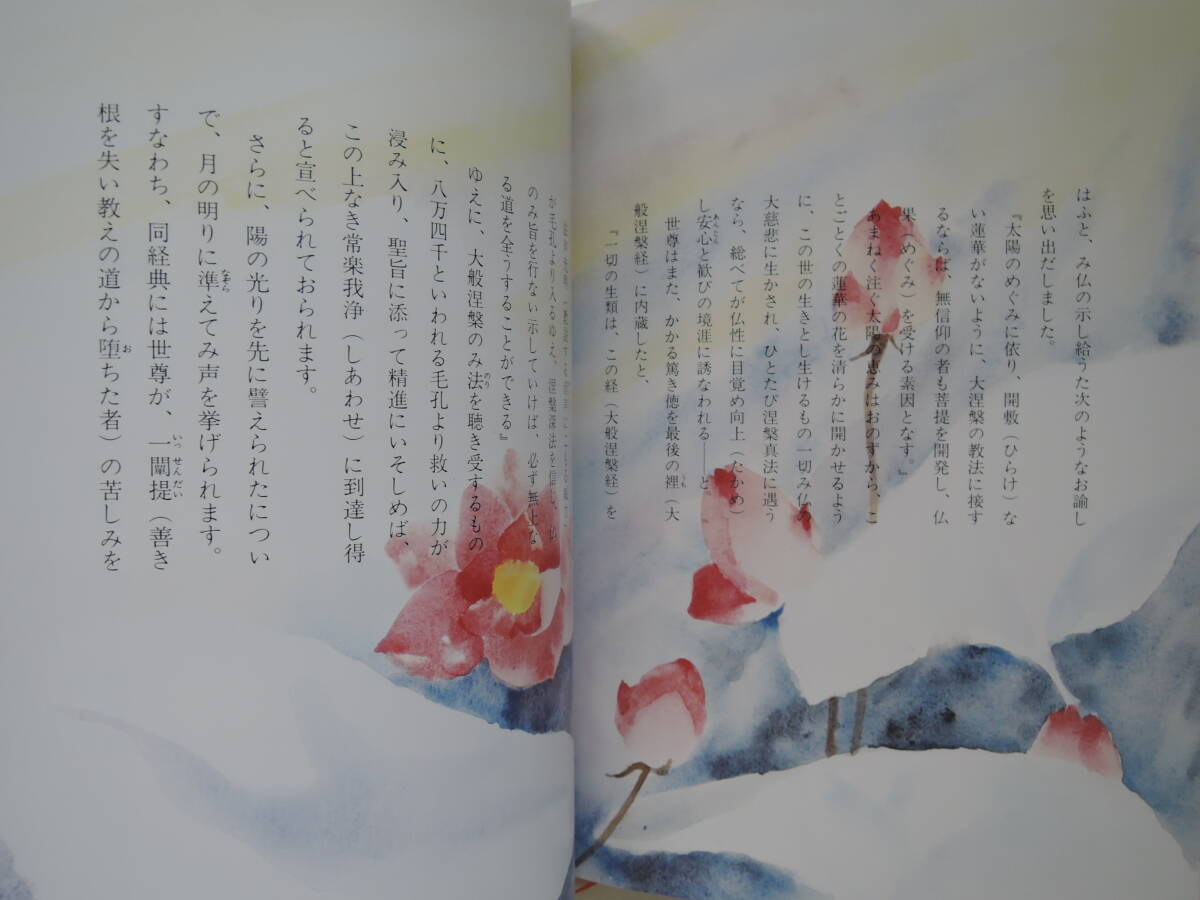 はふと、み仏の示し給うた次のようなお諭し
を思い出だしました。
『太陽のめぐみに依り、開敷（ひらけ）な
い蓮華がないように、大涅槃の教法に接す
るならば、無信仰の者も菩提を開発し、仏
果（めぐみ）を受ける素因となす。』
あまねく注ぐ太陽の恵みはおのずから、こ
とごとくの蓮華の花を清らかに開かせるよう
に、この世の生きとし生けるもの一切み仏の
大慈悲に生かされ、ひとたび涅槃真法に遇う
なら、総べてが仏性に目覚め向上（たかめ）
し安心と歓びの境涯に誘なわれる――と。
世尊はまた、かかる篤き徳を最後の裡（大
般涅槃経）に内蔵したと、
『一切の生類は、この経（大般涅槃経）を
が毛孔より入るゆえ、涅槃深法を信じ、仏
のみ旨を行ない示していけば、必ず無上な
る道を全うすることができる』
ゆえに、大般涅槃のみ法を聴き受するもの
に、八万四千といわれる毛孔より救いの力が
浸み入り、聖旨に添って精進にいそしめば、
この上なき常楽我浄（しあわせ）に到達し得
ると宣べられておられます。
さらに、陽の光りを先に譬えられたについ
で、月の明りに準えてみ声を挙げられます。
すなわち、同経典には世尊が、一闡提（善き
根を失い教えの道から堕ちた者）の苦しみを